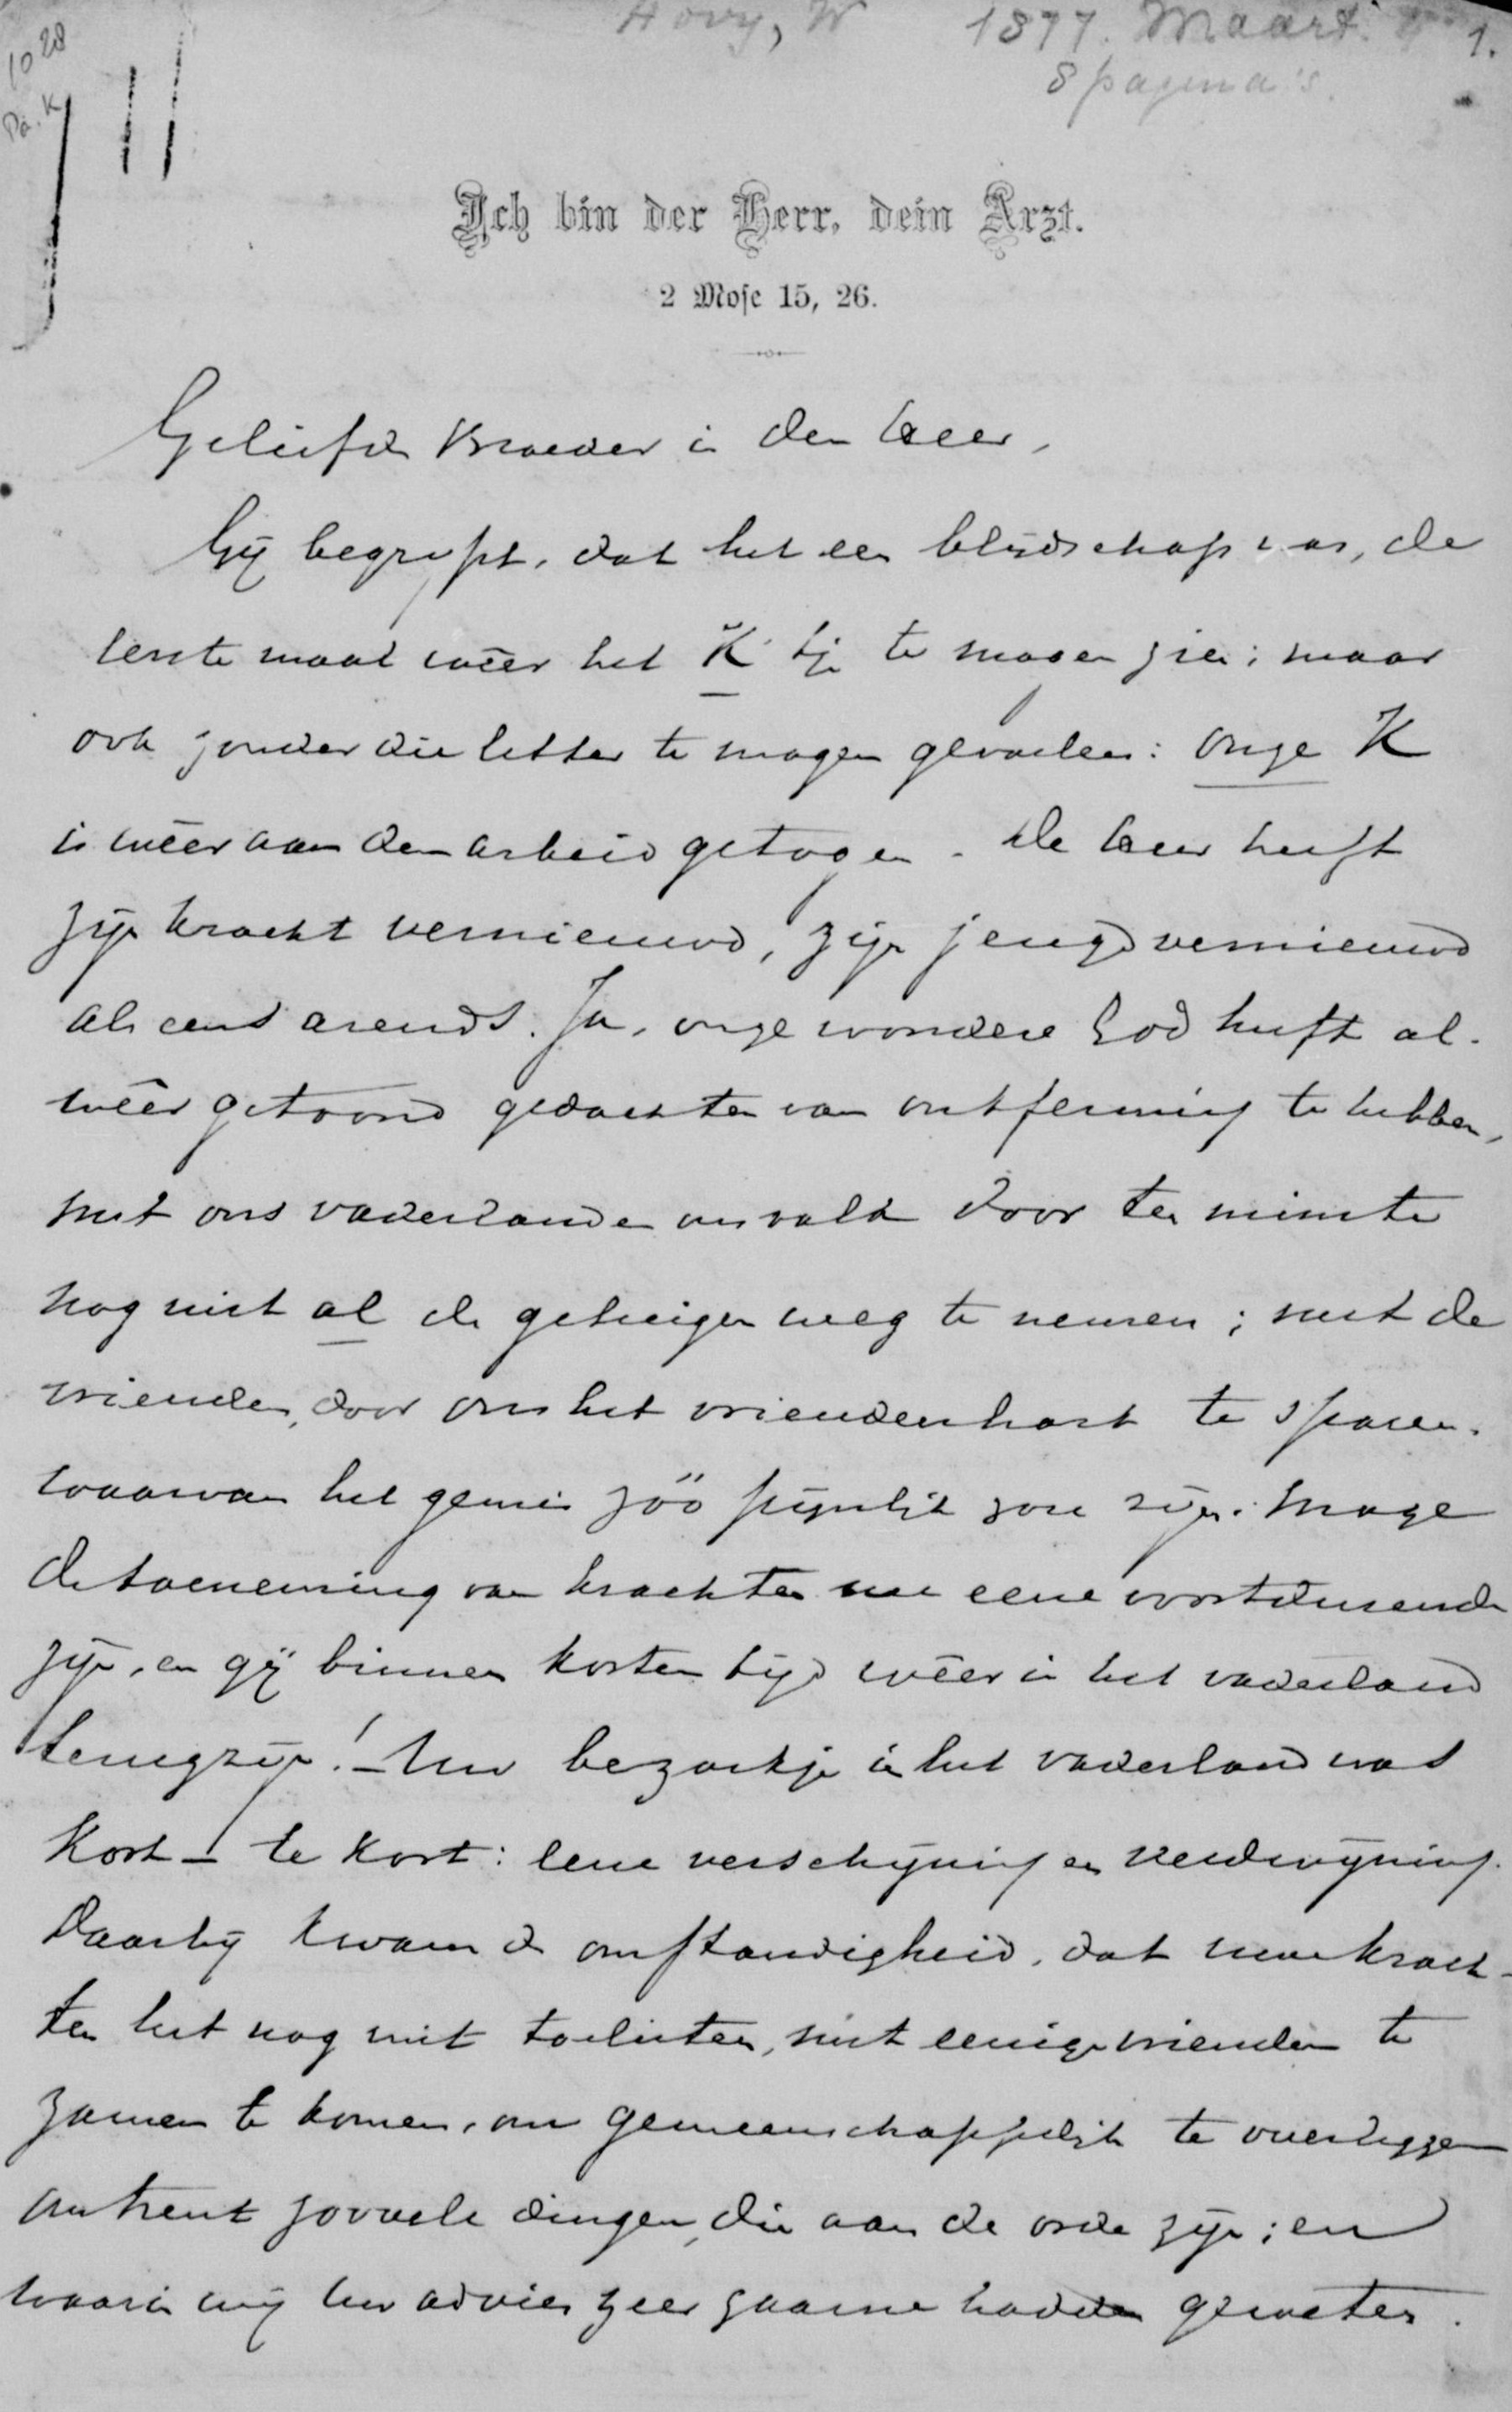 Hovy, W 1877. Maart. 1.
8 pagina's.
1028
Pa. K
Ich bin der Herr, dein Arzt.
2 Mose 15, 26.
Geliefde Broeder in den Heer,
Gij begrijpt, dat het een blijdschap was, de
eerste maal weêr het K tje te mogen zien; maar
ook zonder die letter te mogen gevoelen: onze K
is weêr aan den arbeid getogen. De Heer heeft
zijn kracht vernieuwd, zijn jeugd vernieuwd
als eens arends. Ja, onze wondere God heeft al-
weêr getoond gedachten van ontferming te hebben,
met ons vaderland en ons volk door ten minste
nog niet al de getuigen weg te nemen; met de
vrienden, door ons het vriendenhart te sparen,
waarvan het gemis zóó pijnlijk zou zijn. Moge
de toeneming van krachten nu eene voortdurende
zijn, en gij binnen korten tijd weêr in het vaderland
terug zijn! – Uw bezoekje in het vaderland was
kort – te kort: eene verschijning en verdwijning.
Daarbij kwam de omstandigheid, dat uwe krach-
ten het nog niet toelieten, met eenige vrienden te
zamen te komen, om gemeenschappelijk te overleggen
omtrent zoovele dingen, die aan de orde zijn; en
waarin wij uw advies zeer gaarne hadden geweten.